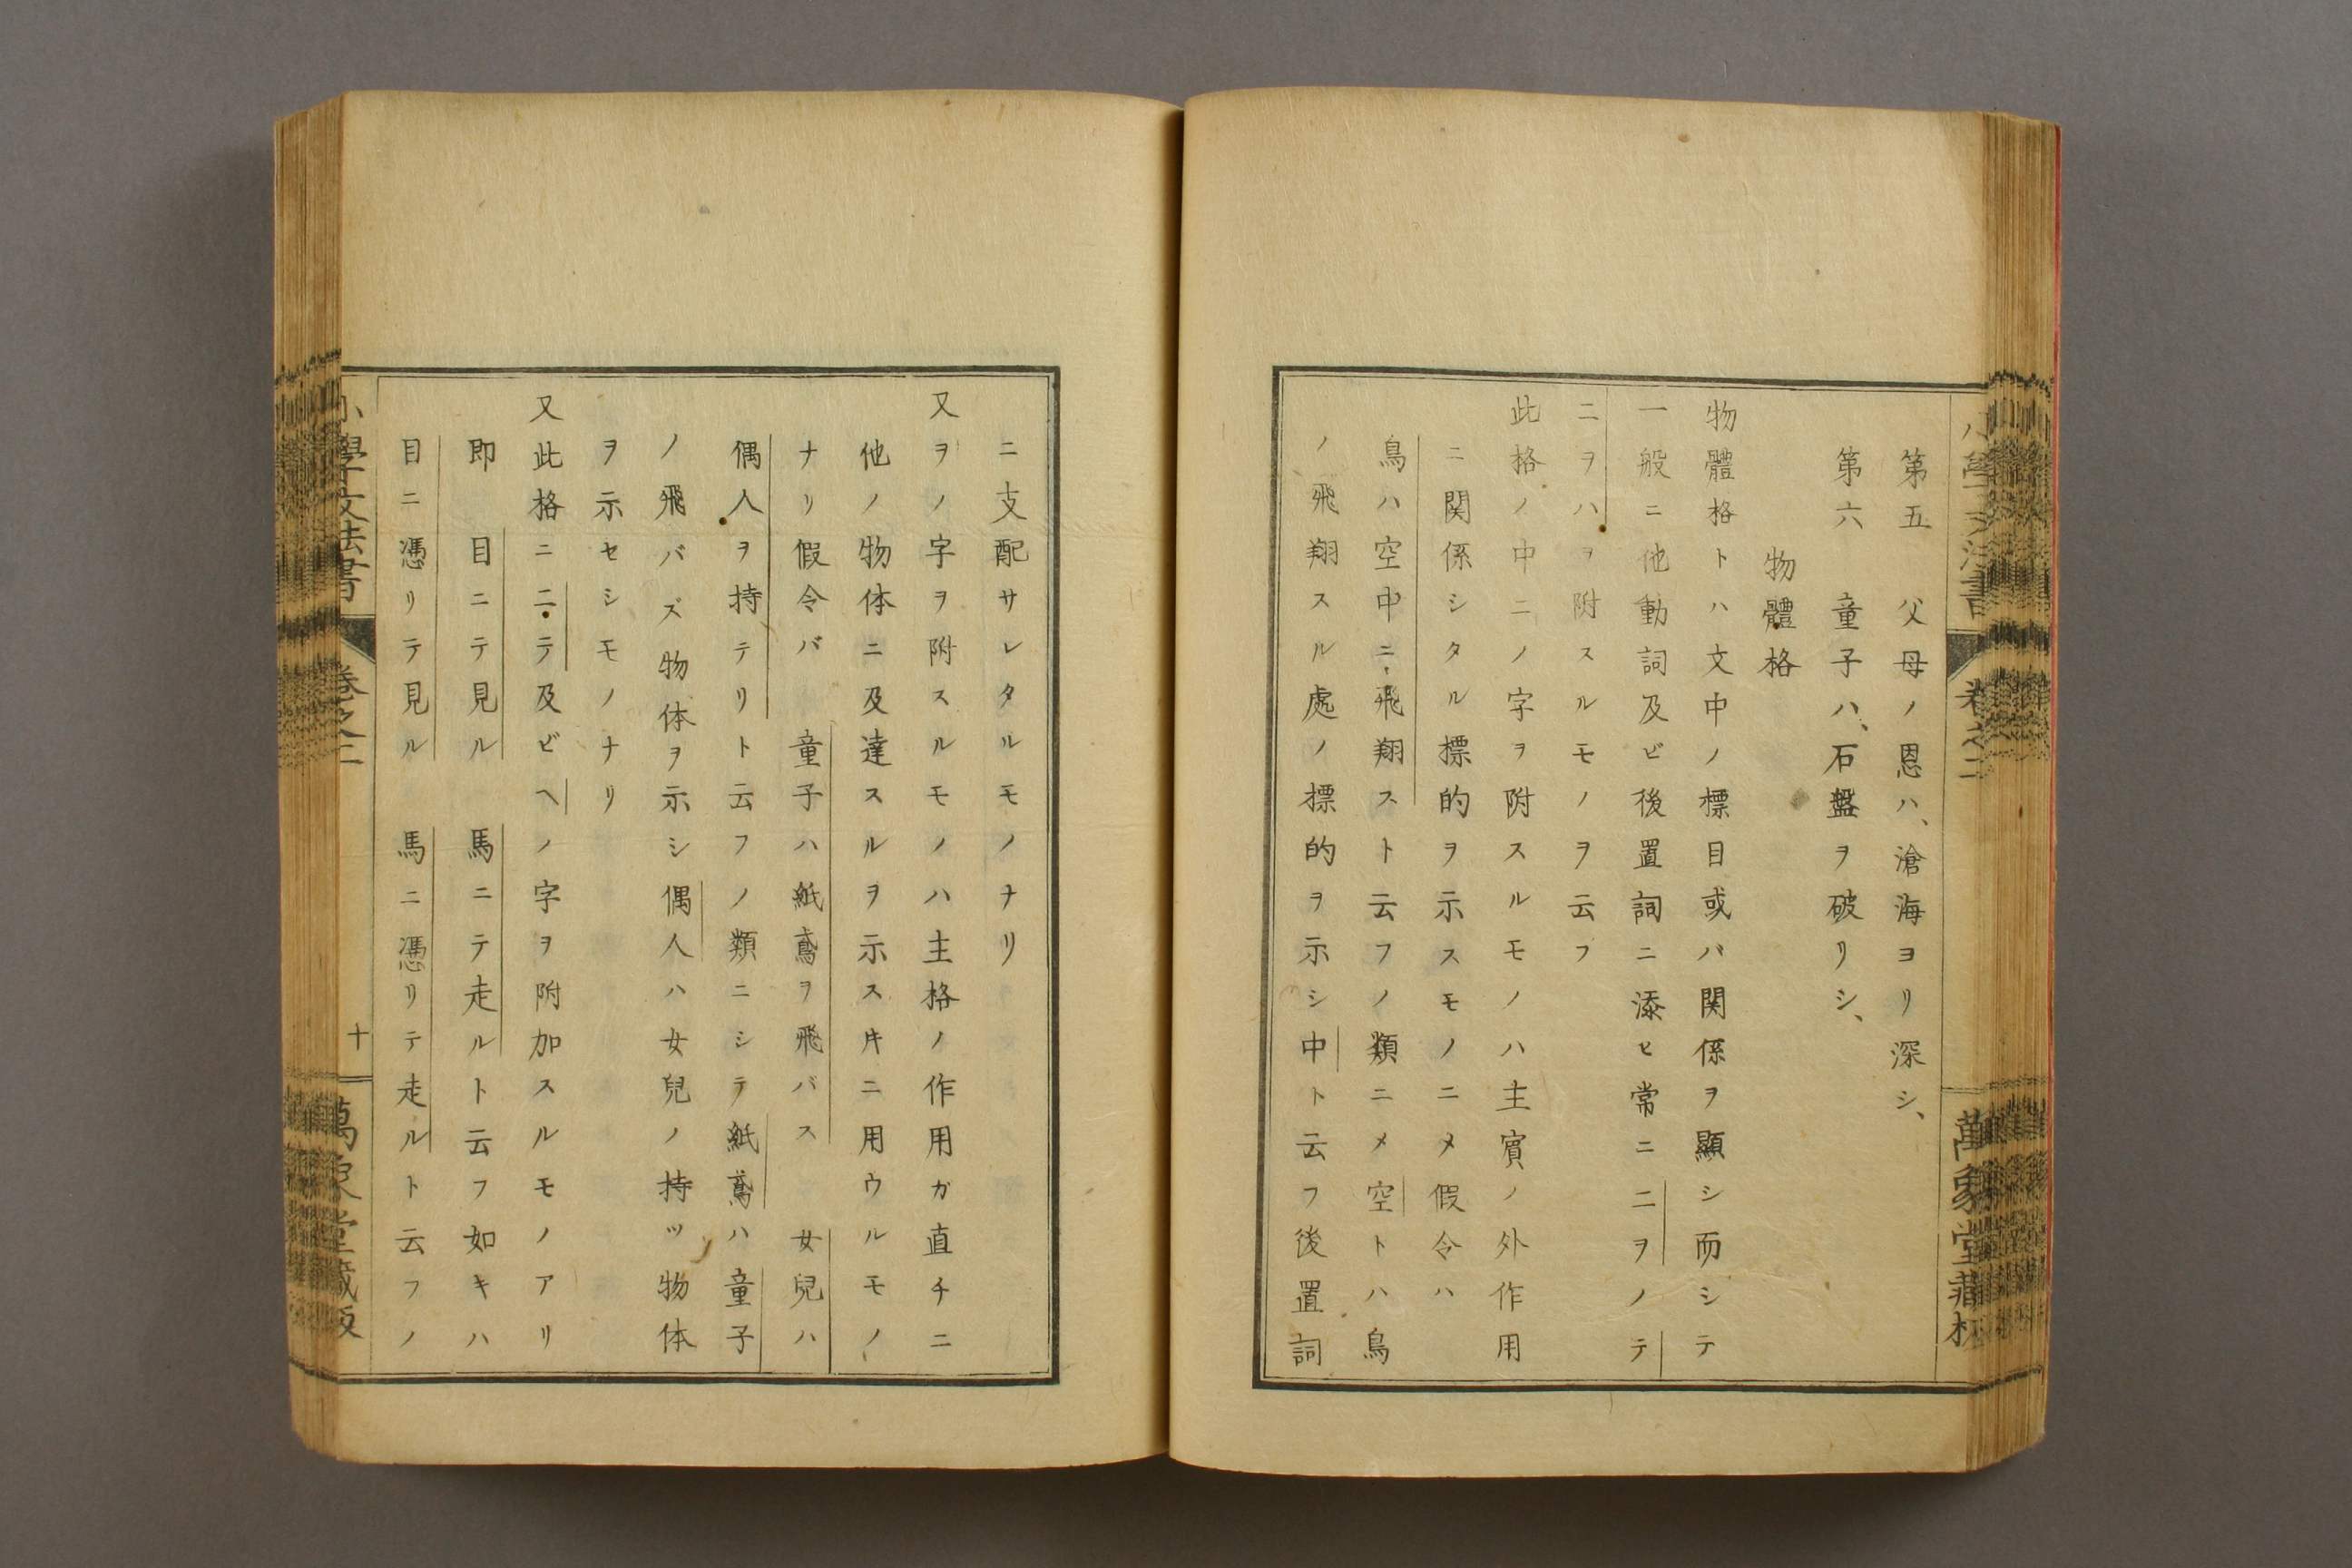 第五 父母ノ恩ハ、滄海ヨリ深シ、
第六 童子ハ、石盤ヲ破リシ、
物體格
物體格トハ文中ノ標目或バ関係ヲ顯シ而シテ
一般ニ他動詞及ビ後置詞ニ添ヒ常ニニヲノテ
ニヲハヲ附スルモノヲ云フ
此格ノ中ニノ字ヲ附スルモノハ主賓ノ外作用
ニ関係シタル標的ヲ示スモノニメ假令ハ
鳥ハ空中ニ飛翔ストト云フノ類ニメ空トハ鳥
ノ飛翔スル處ノ標的ヲ示シ中ト云フ後置詞
萬象堂蔵板
ニ支配サレタルモノナリ
又ヲノ字ヲ附スルモノハ主格ノ作用ガ直チニ
他ノ物体ニ及達スルヲ示スキニ用ウルモノ
ナリ假令バ 童子ハ紙鳶ヲ飛バス 女兒ハ
偶人ヲ持テリト云フノ類ニシテ紙鳶ハ童子
ノ飛バズ物体ヲ示シ偶人ハ女兒ノ持ツ物体
ヲ示セシモノナリ
又此格ニニテ及ビヘノ字ヲ附加スルモノアリ
即 目ニテ見ル 馬ニテ走ルト云フ如キハ
目ニ憑リテ見ル 馬ニ憑リテ走ルト云フノ
小學文法書 巻之二 十 萬象堂蔵版